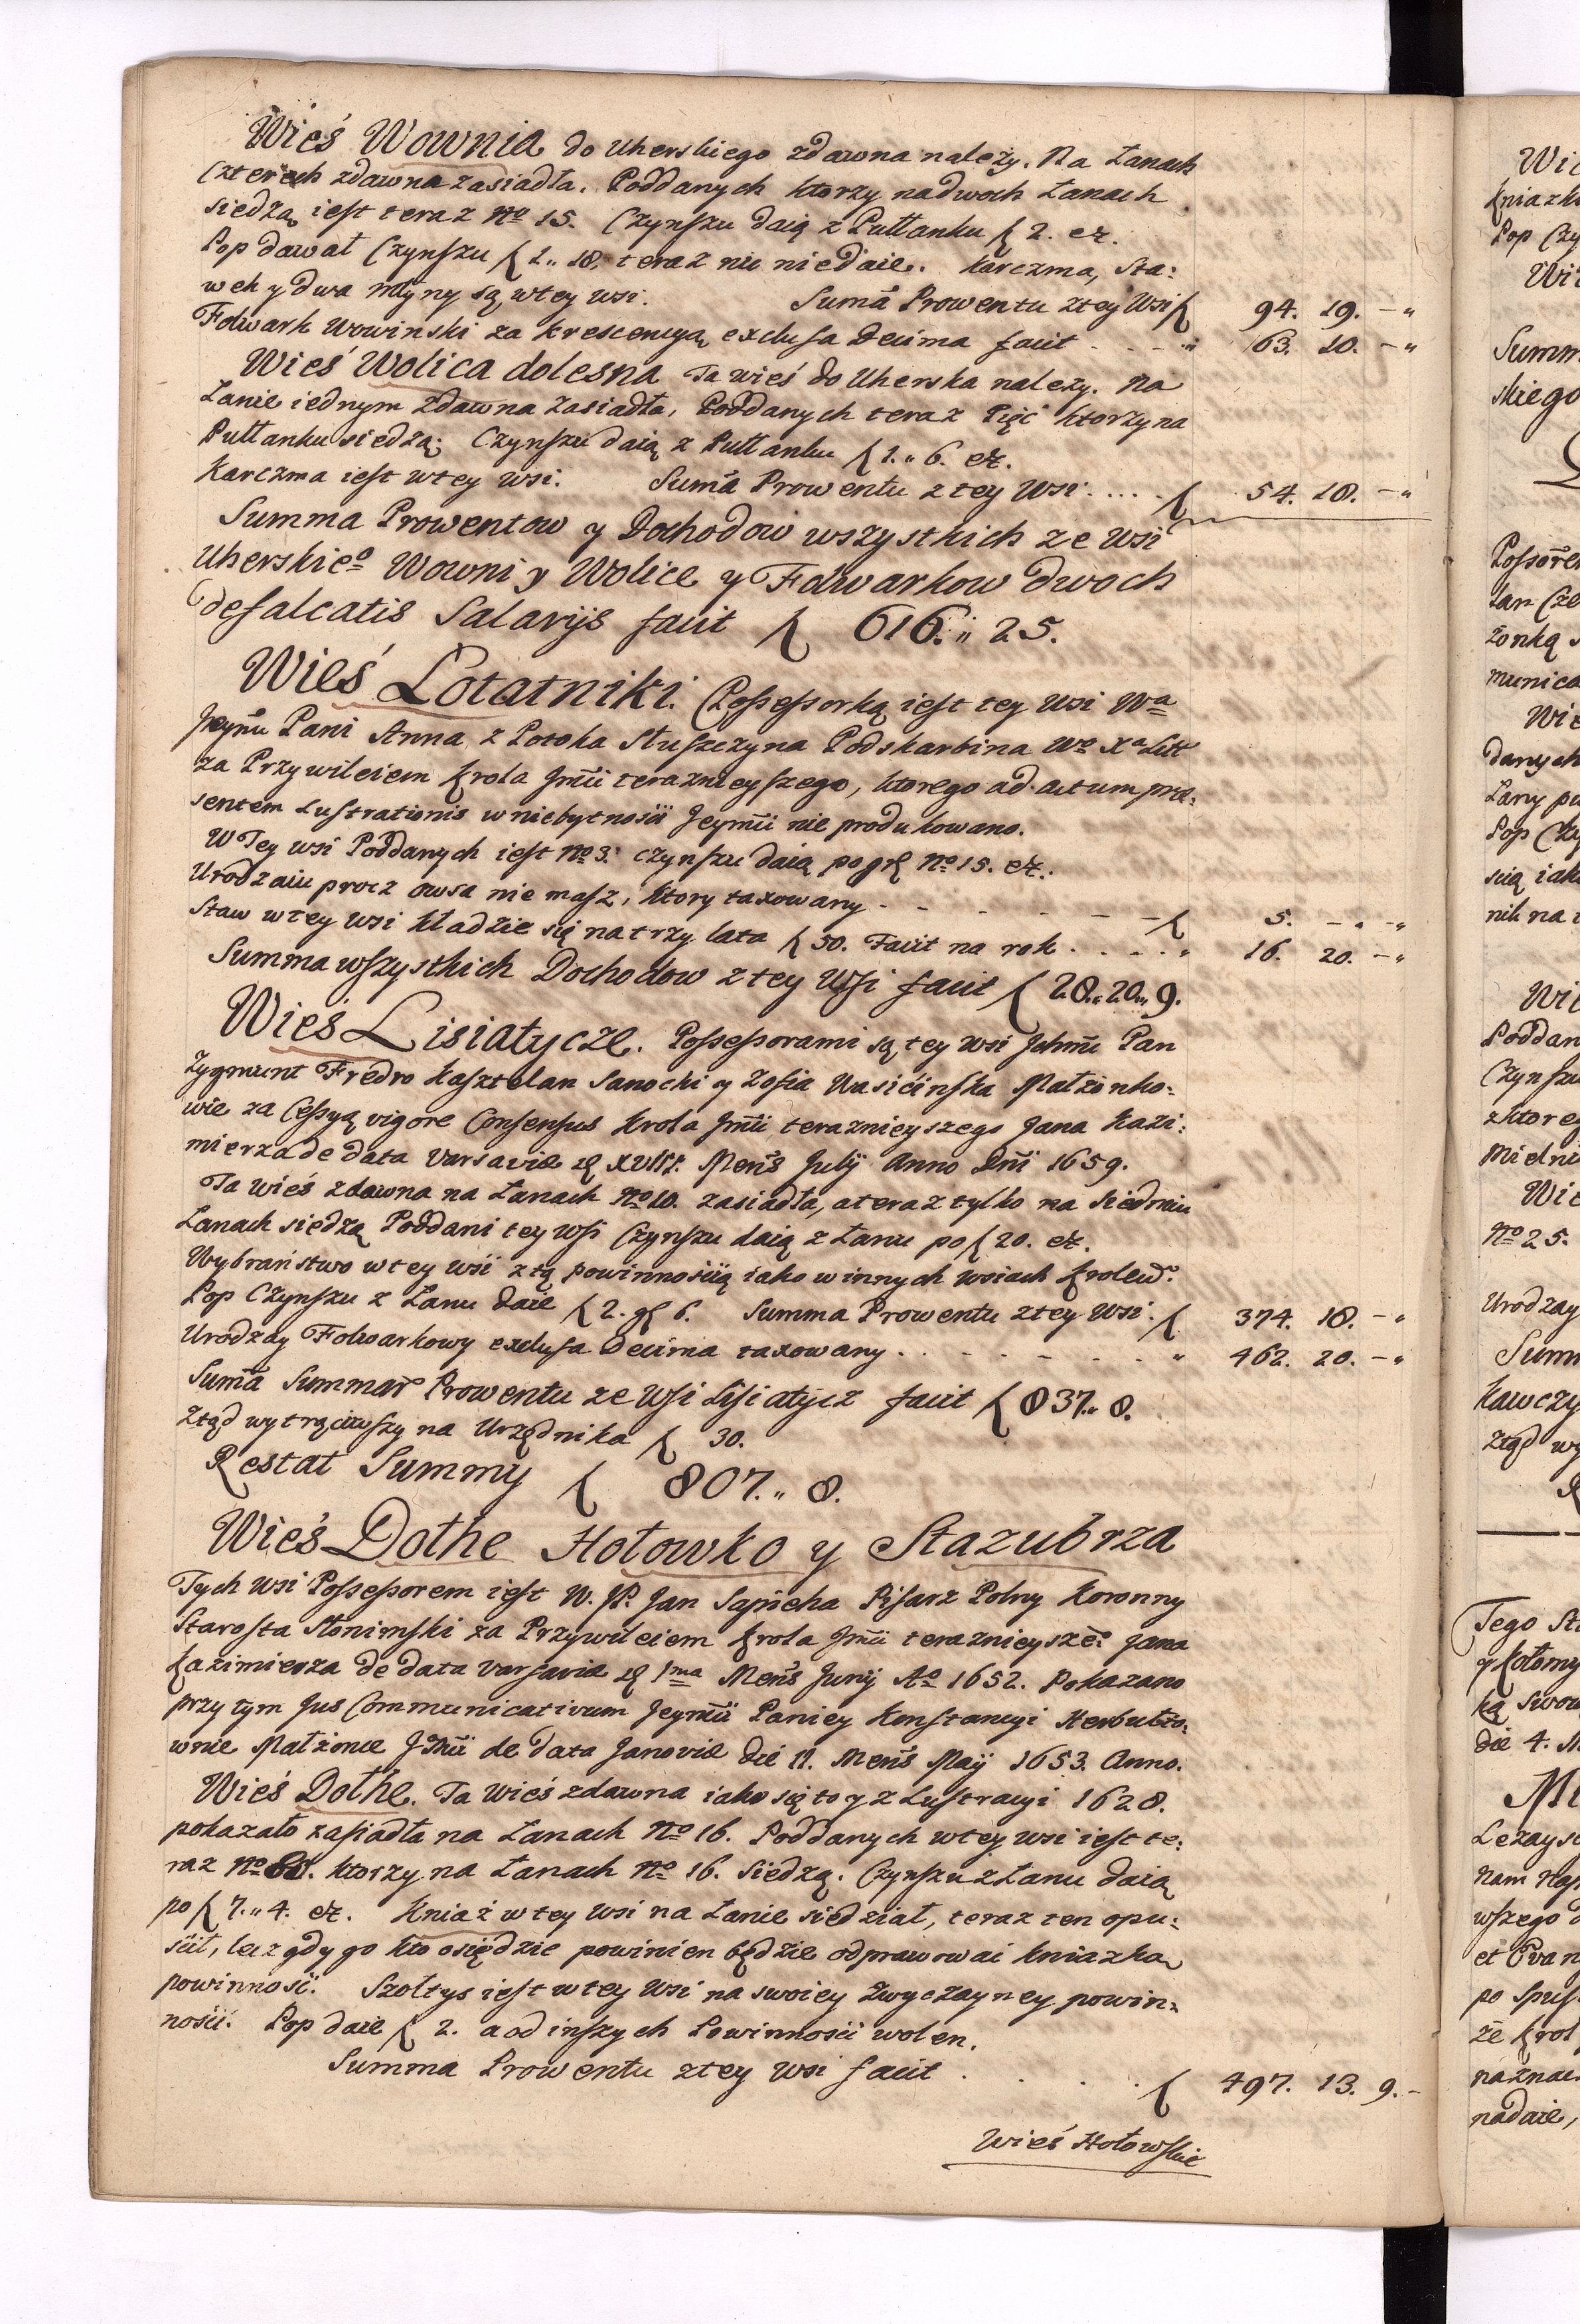 Wieś Wownia do Uherskiego zdawna należy. Na Łanach
Czterech zdawna zasiadła. Poddanych ktorzy na dwoch Łanach
siedzą iest teraz No 15. Czynszu daią z Pułłanku f 2. etc.
Pop dawał Czynszu f 1.. 18. teraz nic niedaie. Karczma, Sta:
wek y dwa młyny są w tey wsi. Suma Prowentu z tey Wsi f 94. 19. – „
Folwark Wowinski za krescencyą exclusa Decima facit . . – . „ 63. 10. – „
Wieś Wolica dolesna Ta wieś do Uherska należy. Na
Łanie iednym zdawna zasiadła, Poddanych teraz Pięć ktorzy na
Pułłanku siedzą: Czynszu daią z Pułłanku f 1. „ 6. etc.
Karczma iest w tey wsi. Suma Prowentu z tey Wsi . . . . . f 54. 18. – „
Summa Prowentow y Dochodow wszystkich ze wsi
Uherskieo Wowni y Wolice y Folwarkow dwoch
defalcatis Salarijs facit f 616. „ 25.
Wieś Łotatniki. Possessorką iest tey wsi Wa
Jeymu Pani Anna z Potoka Słuszczyna Podskarbina Wo Xa Litt
za Przywileiem Krola Jmci teraznieyszego, ktorego ad actum præ:
sentem Lustrationis w niebytności Jeymci nie produkowano.
W Tey wsi Poddanych iest No 3. czynszu daią po gr No 15. etc.
Urodzaiu procz owsa nie masz, ktory taxowany – – – – – – f 5. – „ – „
Staw w tey wsi kładzie się na trzy lata f 50. Facit na rok . . . . „ 16. 20. – „
Summa wszystkich Dochodow z tey Wsi facit f 28. „ 20. „ 9.
Wieś Lisiatycze. Possessorami są tey wsi Jchmc Pan
Zygmunt Fredro Kasztelan Sanocki y Zofia Małżonko:
wie za Cessyą vigore Consensus Krola Jmci teraznieyszego Jana Kazi:
mierza de data Varsaviæ Mens July Anno Dni 1659.
Ta wieś zdawna na Łanach No 10. zasiadła, a teraz tylko na siedmiu
Łanach siedzą Poddani tey Wsi Czynszu daią z Łanu po f 20. etc.
Wybraństwo w tey wsi z tą powinnością iako w innych wsiach Krolew:
Pop Czynszu z Łanu daie f 2. gr 6. Summa Prowentu z tey wsi . f 374. 18. – „
Urodzay Folwarkowy exclusa Decima taxowany . . – – – . . „ 462. 20. – „
Suma Summar Prowentu ze Wsi Lisiatycz facit f 837. „ 8.
Ztąd wytrąciwszy na Urzędnika f 30.
Restat Summy f 807. „ 8.
Wieś Dołhe Hołowko y Stazubrza
Tych wsi Possessorem iest W. JP. Jan Sapieha Pisarz Polny Koronny
Starosta Słonimski za Przywileiem Krola Jmci teraznieysze: Jana
Kazimierza de data Varsaviæ 1ma Mens Junij Ao 1652. Pokazano
przy tym Jus Communicativum Jeymci Paniey Konstancyi Herbułto:
wnie Małżonce Jchmci de data Janoviæ die 11. Mens Maij 1653. Anno.
Wieś Dołhe. Ta Wieś zdawna iako się to y z Lustracyi 1628.
pokazało zasiadła na Łanach No 16. Poddanych w tey wsi iest te:
raz No ktorzy na Łanach No 16. siedzą. Czynszu z Łanu daią
po f 7. „ 4. etc. Kniaź w tey wsi na Łanie siedział, teraz ten opu:
ścił, lecz gdy go kto osiędzie powinien będzie odprawować kniazka
powinności. Szołtys iest w tey Wsi na swoiey zwyczayney powin:
ności. Pop daie f 2. a od inszych Powinności wolen.
Summa Prowentu z tey wsi facit . . . . f 497. 13. 9. –
Wieś Hołowskie